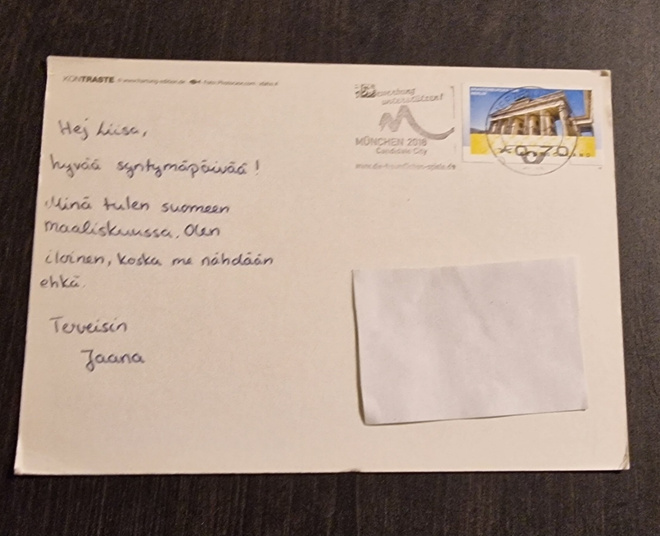 KONTRASTE
Hej Liisa,
hyvää syntymäpäivää!
Minä tulen suomeen
maaliskuussa. Olen
iloinen, koska me nähdään
ehkä.
Terveisin
Jaana
Bewerbung
unterstützen!
MÜNCHEN 2018
Candidate City
www.die-freundlichen-spiele.de
*0,70